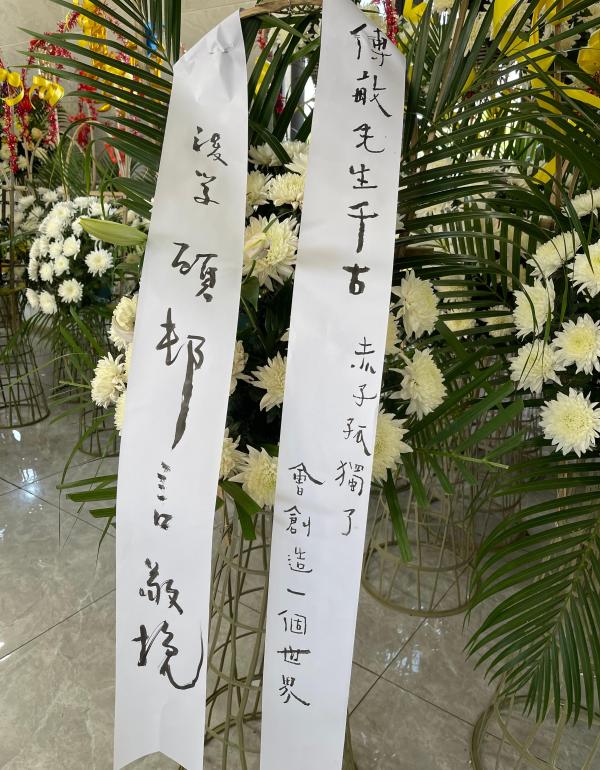 傅敏先生千古
赤子孤獨了
會創造一個世界
後学 頋邨言 敬挽